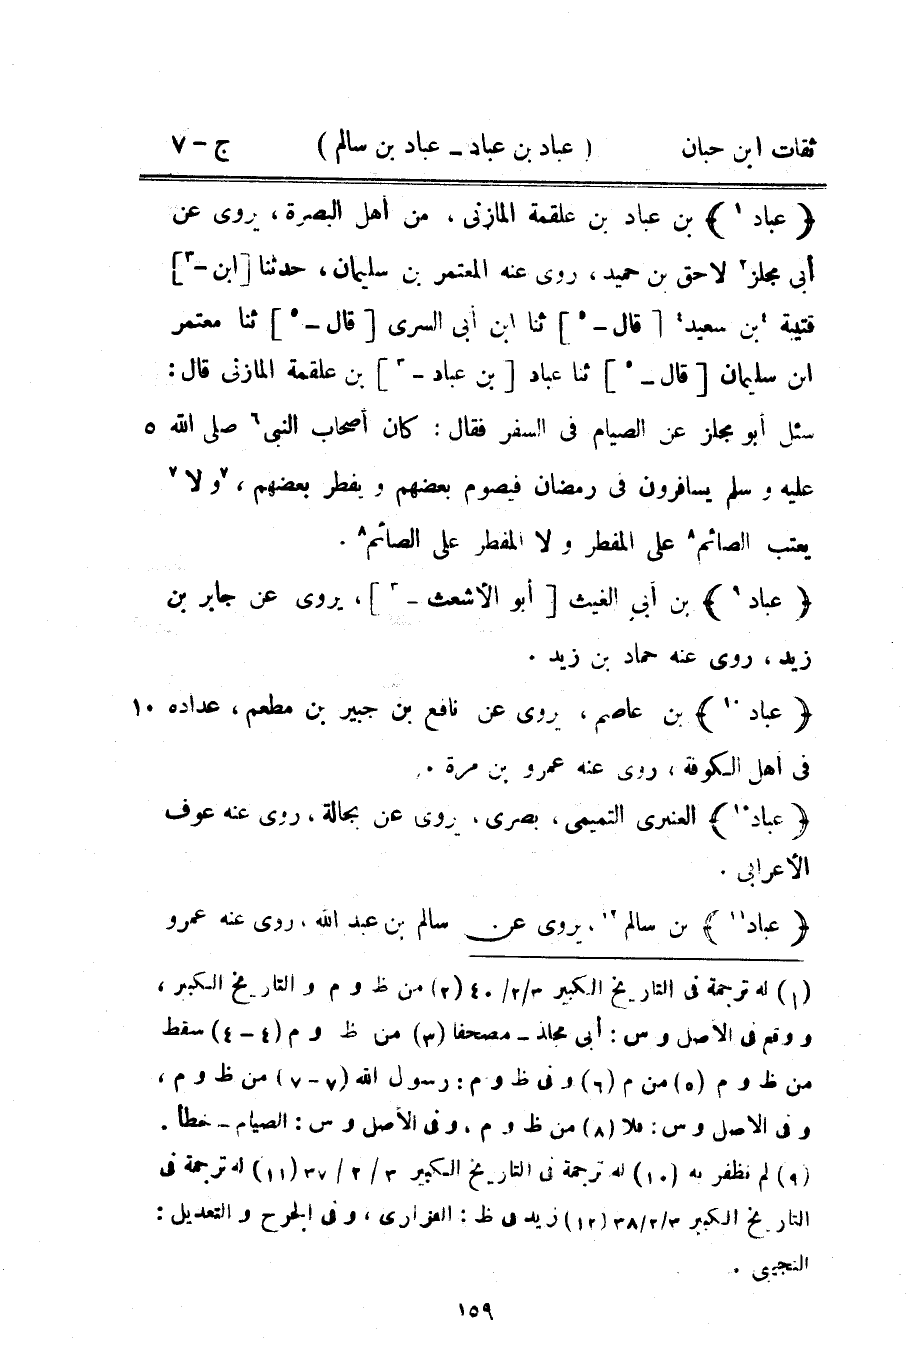 ثقات ابن حبان ( عباد بن عباد ـ عباد بن سالم ) ج - ٧
﴿ عباد ١ ﴾ بن عباد بن علقمة المازنى ، من أهل البصرة ، يروى عن
أبى مجلز٢ لاحق بن حميد ، روى عنه المعتمر بن سليمان ، حدثنا [ ابن -٣ ]
قتيبة ٤بن سعيد٤ [ قال - ٥ ] ثنا ابن أبى السرى [ قال - ٥ ] ثنا معتمر
ابن سليمان [ قال - ٥ ] ثنا عباد [ بن عباد - ٣ ] بن علقمة المازنى قال :
سئل أبو مجلز عن الصيام فى السفر فقال : كان أصحاب النبى٦ صلى الله ٥
عليه و سلم يسافرون فى رمضان فيصوم بعضهم و يفطر بعضهم ، ٧و لا٧
يعتب الصائم٨ على المفطر و لا المفطر على الصائم٨ .
﴿ عباد ٩ ﴾ بن أبي الغيث [ أبو الأشعث - ٣ ] ، يروى عن جابر بن
زيد ، روى عنه حماد بن زيد .
﴿ عباد ١٠ ﴾ بن عاصم ، يروى عن نافع بن جبير بن مطعم ، عداده ١٠
فى أهل الكوفة ، روى عنه عمرو بن مرة .
﴿ عباد١٠ ﴾ العنبرى التميمى ، بصرى ، يروى عن بجالة ، روى عنه عوف
الأعرابى .
﴿ عباد١١ ﴾ بن سالم ١٢ ، يروى عن سالم بن عبد الله ، روى عنه عمرو
(١) له ترجمة فى التاريخ الكبير ٣/ ٢/ ٤٠ (٢) من ظ و م و التاريخ الكبير ،
و وقع فى الأصل و س : أبى مجلذ ـ مصحفا (٣) من ظ و م (٤ - ٤) سقط
من ظ و م (٥) من م (٦) و فى ظ و م : رسول الله (٧ - ٧) من ظ و م ،
و فى الاصل و س : فلا (٨) من ظ و م ، و فى الأصل و س : الصيام ـ خطأ .
(٩) لم نظفر به (١٠) له ترجمة فى التاريخ الكبير ٣ / ٢ / ٣٧ (١١) له ترجمة فى
التاريخ الكبير ٣/ ٢/ ٣٨ (١٢) زيد فى ظ : الفزارى ، و فى الجرح و التعديل :
التجيبى .
١٥٩